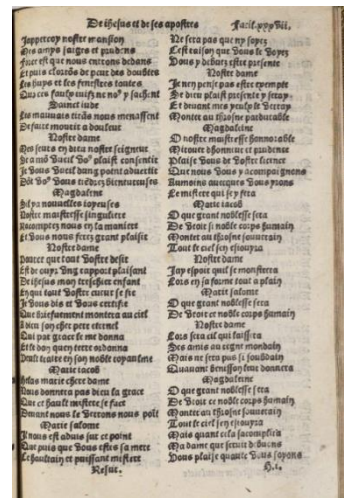 De ihesus et de ses apostres
Jappercoy nostre mansion
Mes amys saiges et prudens
Force est que nous entrons dedans
Et puis
Les huys et les fenestres toutes
Sainct iude
Les mauuais tirās nous menassent
De faire mourir a douleur
Nostre dame
Mes seurs en dieu nostre seigneur
Magdalene
Sil ya nouuelles ioyeuses
Nostre maistresse singuliere
Racomptez nous en la maniere
Et vous nous ferez grant plaisir
Nostre dame
Pource que tout vostre desir
Est de ouyr vng rapport plaisant
De ihesus mon treschier enfant
En qui tout vostre cueur se fie
Je vous dis et vous certifie
Que briefuement montera au ciel
A dieu son chere pere eternel
Qui par grace le me donna
Et le don quen terre ordonna
en son noble royaulme
Marie iacob
Helas marie chere dame
Nous donnera pas dieu la grace
Que ce hault mistere se face
Deuant nous le verrons nous point
Marie salome
Il nous est aduis sur ce point
Que puis que vous estes sa mere
Ce haultain et puissant mistere
Ne sera pas que ny soyez
Cest raison que vous le voyez
Vous y debuez estre presente
Nostre dame
Je nen pense pas estre exempte
Se dieu plaist presente y seray
Et deuant mes yeulx le verray
Monter au throsne pardurable
Magdaleine
O nostre maistresse honnorable
Mirouer dhonneur et prudence
Plaise vous de vostre licence
Que nous vous y acompaignons
Aumoins auecques vous yrons
Ce mistere qui sey fera
Marie iacob
O que grant noblesse sera
De veoir si noble corps humain
Monter au throsne souuerain
Tout le ciel sen esiouyra
Nostre dame
Jay espoir quil se monstrera
Lors en sa forme tout a plain
Marie salome
O que grant noblesse sera
De veoir ce noble corps humain
Nostre dame
Lors sera cil qui laissera
Ses amis au regne mondain
Mais ne sera pas si soubdain
Quauant benisson leur donnera
Magdaleine
O que grant noblesse sera
De veoir ce noble corps humain
Monter au throsne souuerain
Tout le ciel sen esiouyra
Mais quant cela sacomplira
Ma dame que seruir debuons
Vous plaise quauec vous soyons